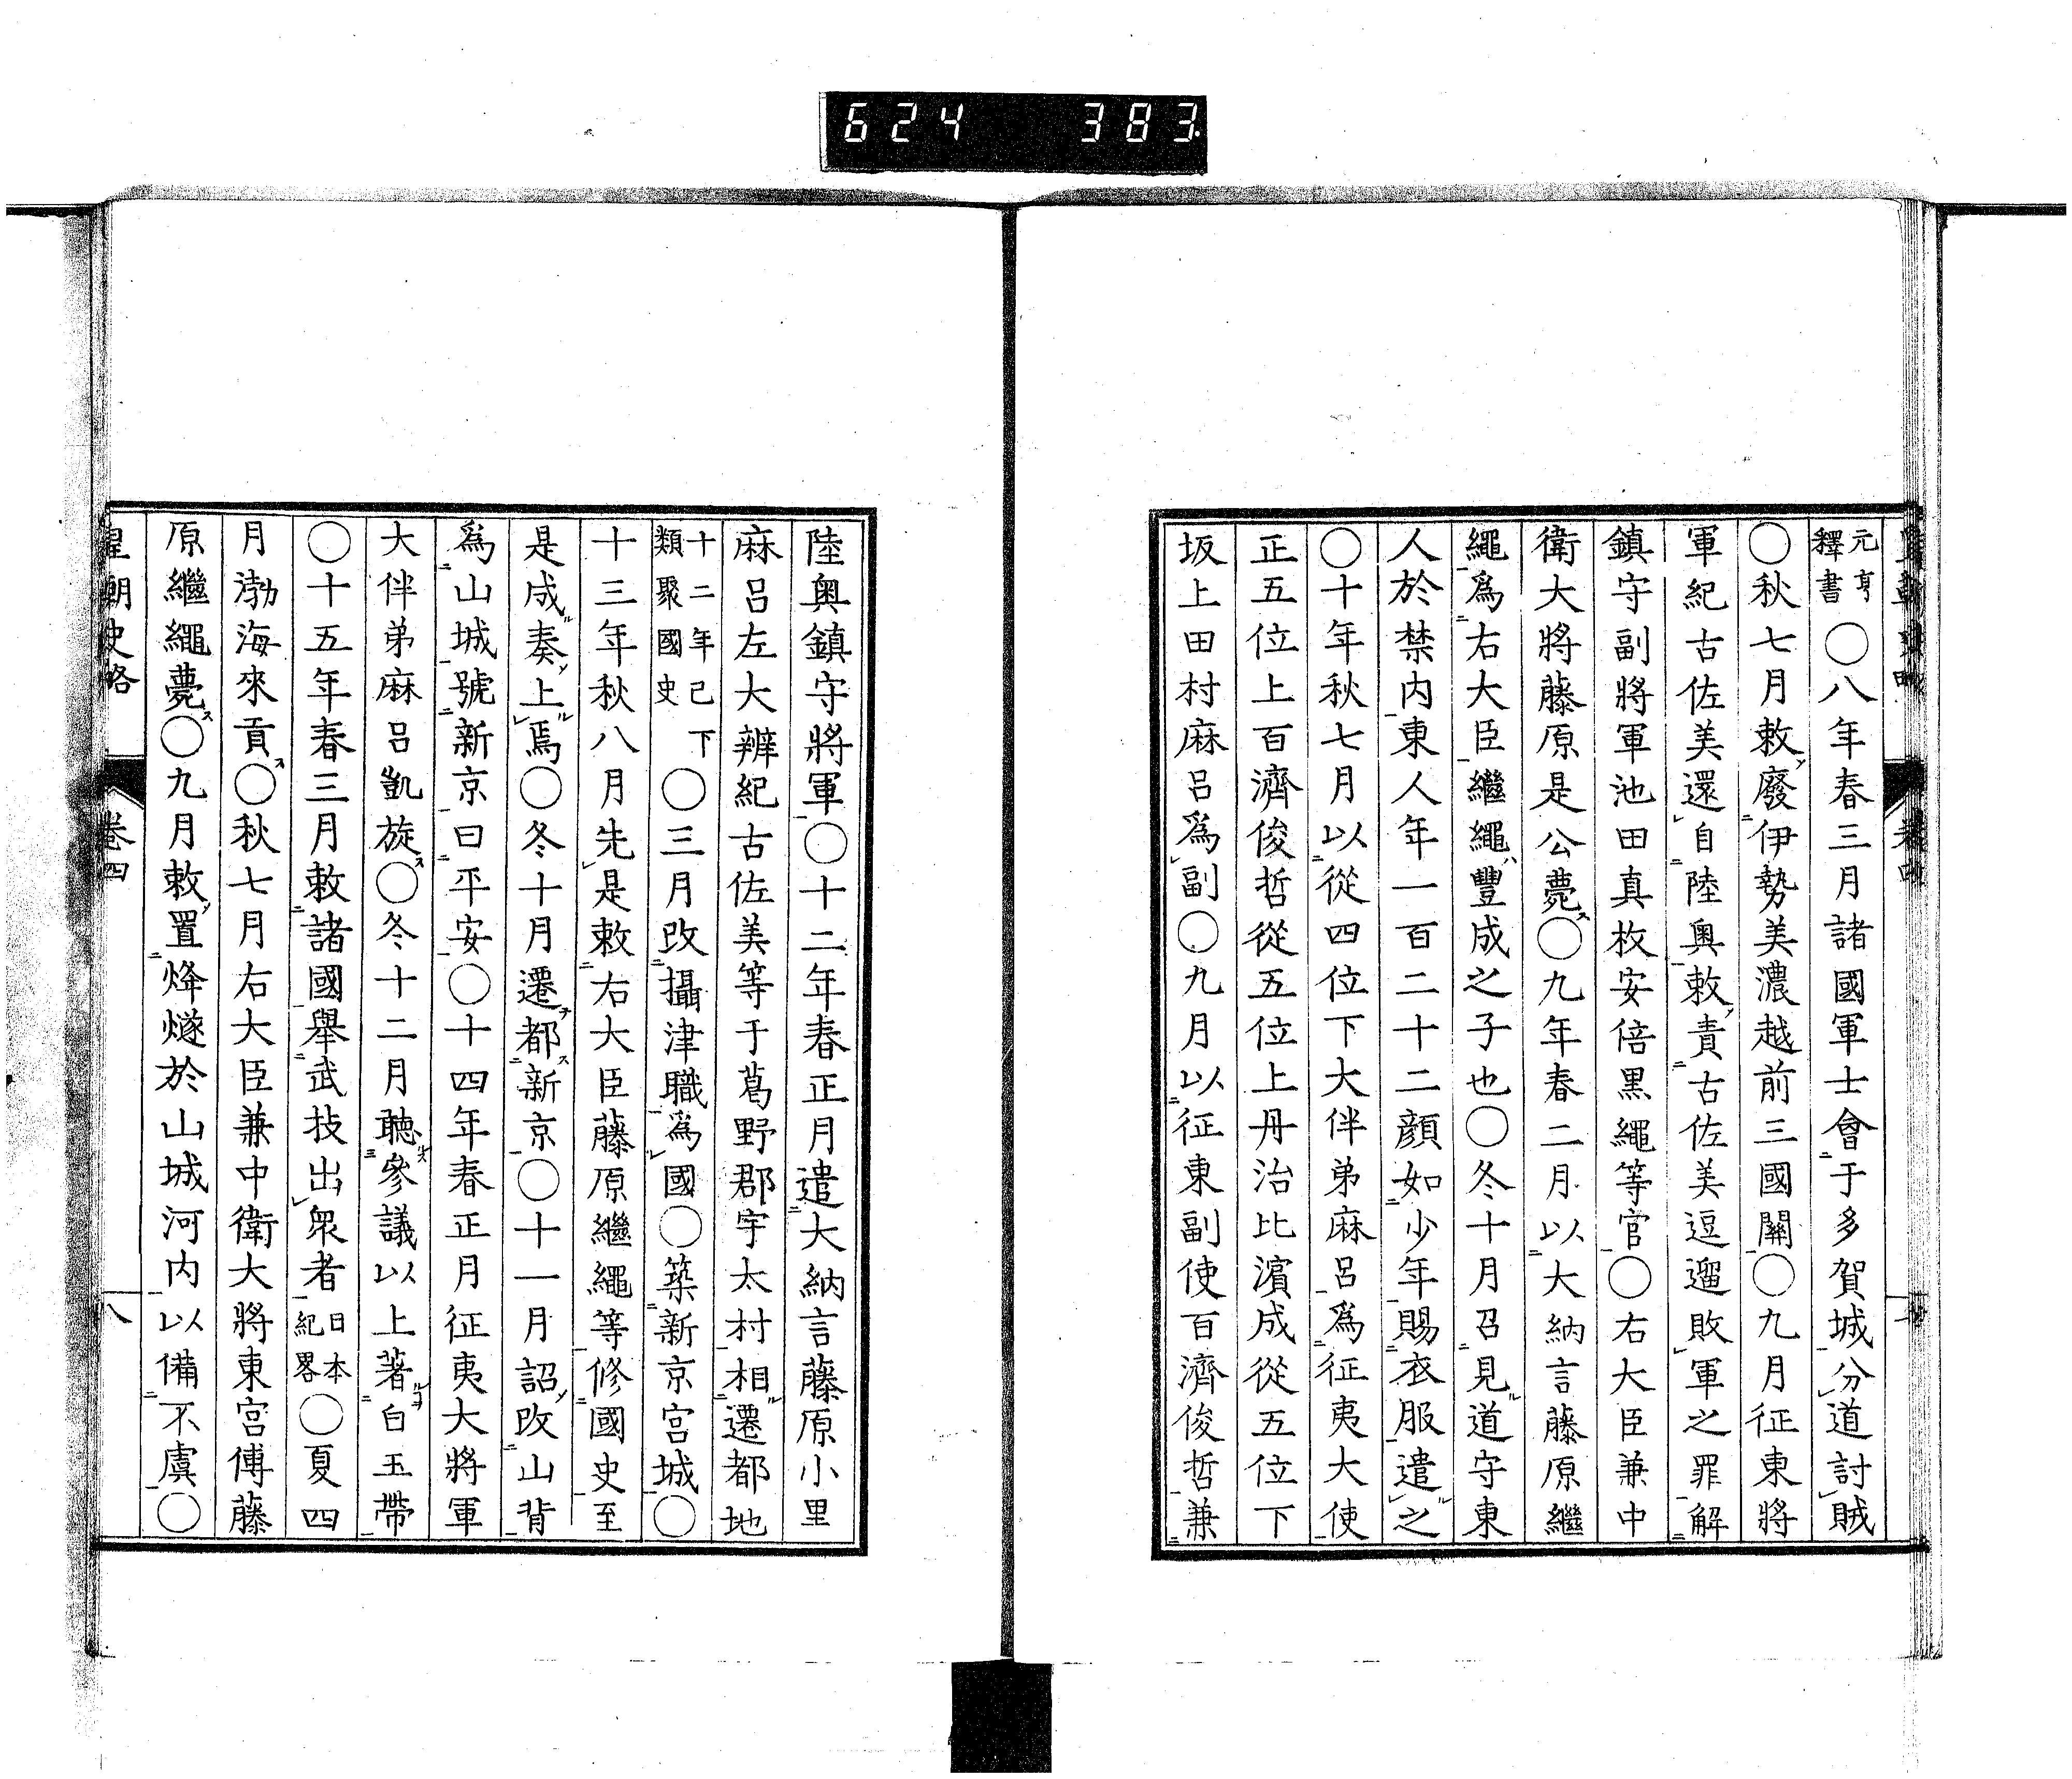 624 383
元亨釋書〇八年春三月諸國軍士會于多賀城分道討賊
〇秋七月敕廢伊勢美濃越前三國關〇九月征東將
軍紀古佐美還自陸奧敕責古佐美逗遛敗軍之罪解
鎮守副將軍池田真枚安倍黒繩等官〇右大臣兼中
衛大將藤原是公薨〇九年春二月以大納言藤原繼
繩爲右大臣繼繩豐成之子也〇冬十月召見道守東
人於禁内東人年一百二十二顔如少年賜衣服遣之
〇十年秋七月以從四位下大伴弟麻呂爲征夷大使
正五位上百濟俊哲從五位上丹治比濱成從五位下
坂上田村麻呂爲副〇九月以征東副使百濟俊哲兼
陸奧鎮守將軍〇十二年春正月遣大納言藤原小里
麻呂左大辨紀古佐美等于葛野郡宇太村相遷都地
十二年已下類聚國史〇三月改攝津職爲國〇築新京宮城〇
十三年秋八月先是敕右大臣藤原繼繩等修國史至
是成奏上焉〇冬十月遷都新京〇十一月詔改山背
爲山城號新京曰平安〇十四年春正月征夷大將軍
大伴弟麻呂凱旋〇冬十二月聽參議以上著白玉帶
〇十五年春三月敕諸國舉武技出衆者日本紀畧〇夏四
月渤海來貢〇秋七月右大臣兼中衛大將東宮傅藤
原繼繩薨〇九月敕置烽燧於山城河内以備不虞〇
皇朝史略 卷四 八